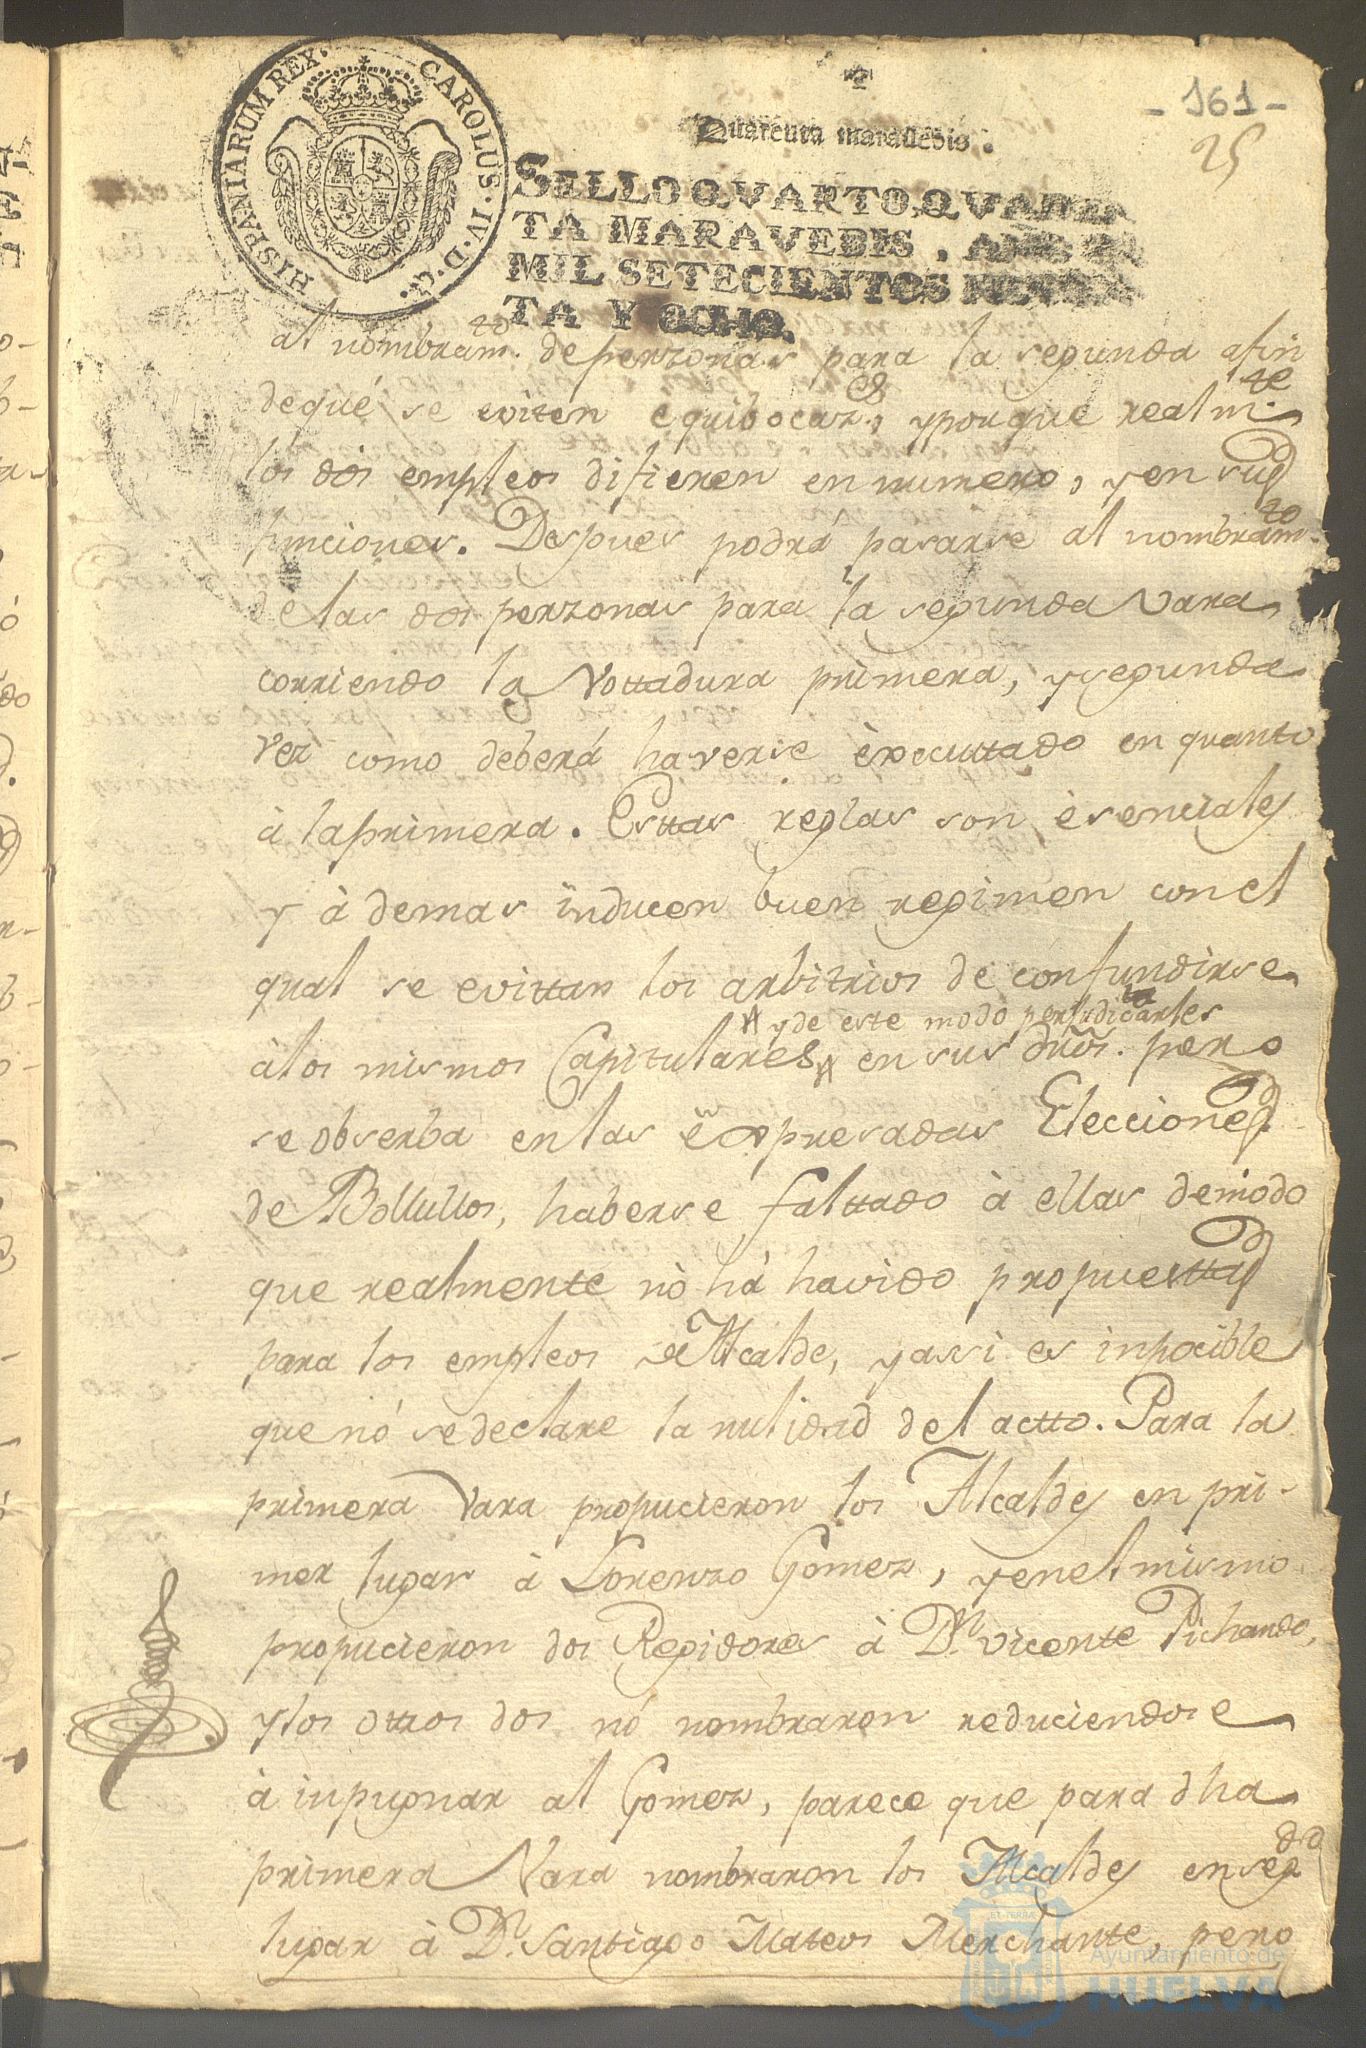 HISPANIARUM REX. CAROLUS. IV. D. G.
- 161 -
25
Quarenta maravedis.
SELLO QVARTO, QVAREN
TA MARAVEDIS, AÑO DE
MIL SETECIENTOS NOVEN
TA Y OCHO.
al nombram.to de perzonas para la segunda afin
dequé se eviten equibocaz.es, yporque realm.te
los dos empleos difieren en numero, y en sus
funciones. Despues podrá pasarse al nombram.to
delas dos perzonas para la segunda Vara,
corriendo la Vottadura primera, y segunda
vez como deberá haverse èxecuttado en quanto
à la primera. Esttas reglas son èsenciales
y à demas inducen buen regimen con el
qual se evittan los arbitrios de confundirse
y de este modo perjudicarles
àlos mismos Capitulares en sus dros. pero
se obserba en las expresadas Elecciones
de Bollullos, haberse falttado à ellas demodo
que realmente nò há havido propuesttas
para los empleos de Alcalde, y asi es inpocible
que nó se declare la nulidad del actto. Para la
primera Vara propucieron los Alcaldes en pri-
mer lugar à Lorenzo Gomez, y en el mismo
propucieron dos Regidores à D.n Vicente Pichardo,
y los ottros dos nó nombraron reduciendose
à inpugnar al Gomez, parece que para dha
primera Vara nombraron los Alcaldes en seg.do
lugar à D.n Santiago Mateos Merchante, pero
Ayuntamiento de
HUELVA